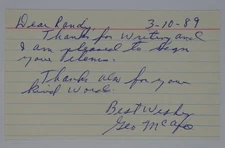 Dear Randy, 3-10-89
Thanks for writing and
I am pleased to sign
your
Thanks also for your
kind words.
Best Wishes
Geo